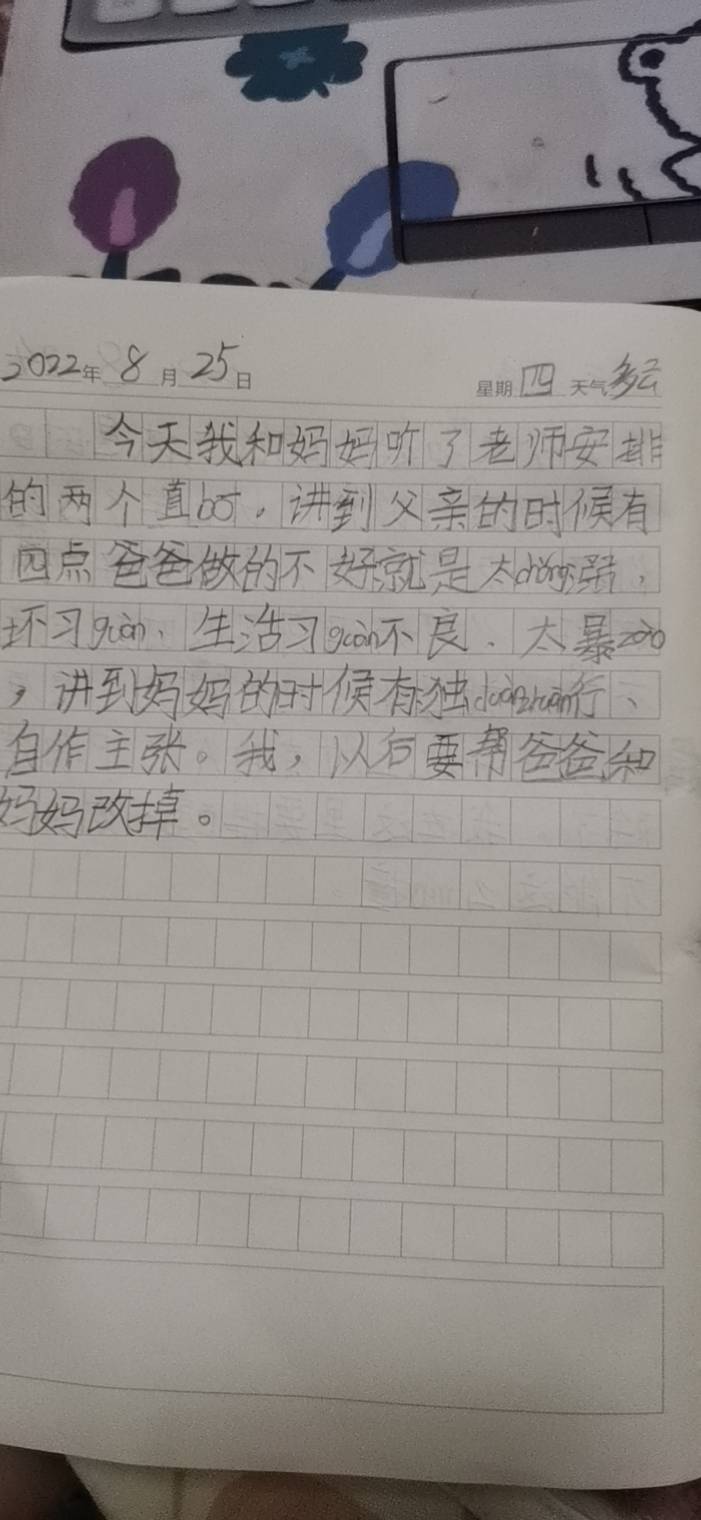 2022年 8月 25日 星期 四 天气 多云
今天我和妈妈听了老师安排
的两个直bō，讲到父亲的时候有
四点爸爸做的不好就是太chěng强、
坏习guàn、生活习guàn不良、太暴zào
，讲到妈妈的时候有独duànzhuān行、
自作主张。我，以后要帮爸爸和
妈妈改掉。